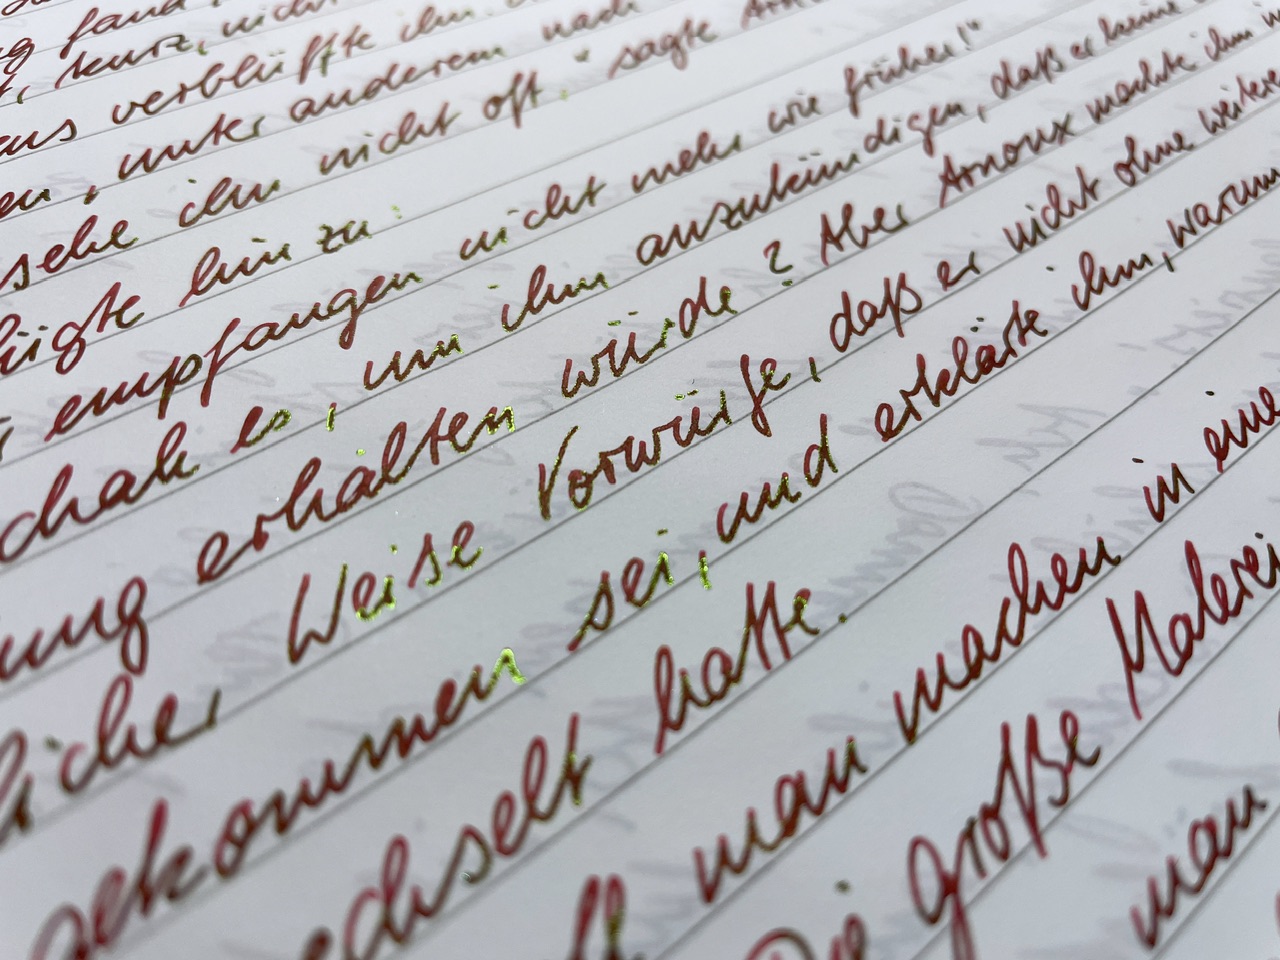 fand
kurz, nicht
aus verblüffte ihn
en, unter anderem nach
sehe ihn nicht oft," sagte
fügte hinzu:
empfangen nicht mehr wie früher!"
es, um ihm anzukündigen, daß er keine
ung erhalten würde? Aber Arnoux machte ihm
licher Weise Vorwürfe, daß er nicht ohne weitere
gekommen sei, und erklärte ihm, warum
echselt hatte.
man machen in eine
Die große Malerei
man